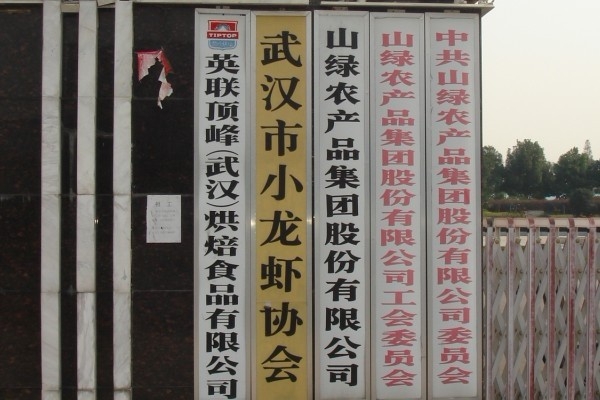 TIPTOP
英联顶峰(武汉)烘焙食品有限公司
武汉市小龙虾协会
山绿农产品集团股份有限公司
山绿农产品集团股份有限公司工会委员会
中共山绿农产品集团股份有限公司委员会